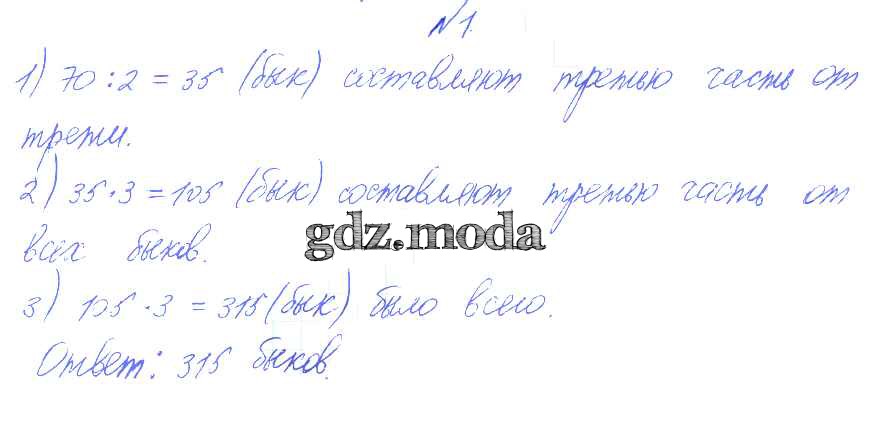 №1.
1) 70 : 2 = 35 (бык) составляют третью часть от
трети.
2) 35 · 3 = 105 (бык) составляют третью часть от
всех быков.
gdz.moda
3) 105 · 3 = 315 (бык) было всего.
Ответ: 315 быков.